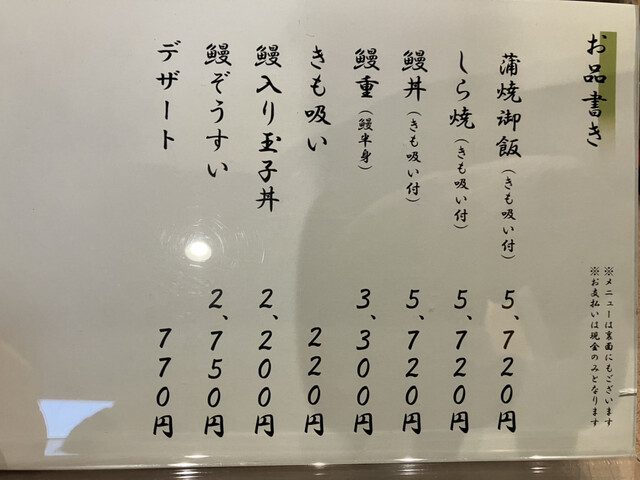 お品書き
※メニューは裏面にもございます
※お支払いは現金のみとなります
蒲焼御飯（きも吸い付） 5、720円
しら焼（きも吸い付） 5、720円
鰻丼（きも吸い付） 5、720円
鰻重（鰻半身） 3、300円
きも吸い 220円
鰻入り玉子丼 2、200円
鰻ぞうすい 2、750円
デザート 770円